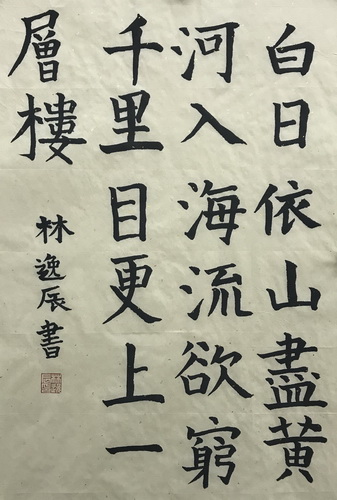 白日依山盡黄
河入海流欲窮
千里目更上一
層樓
林逸辰書